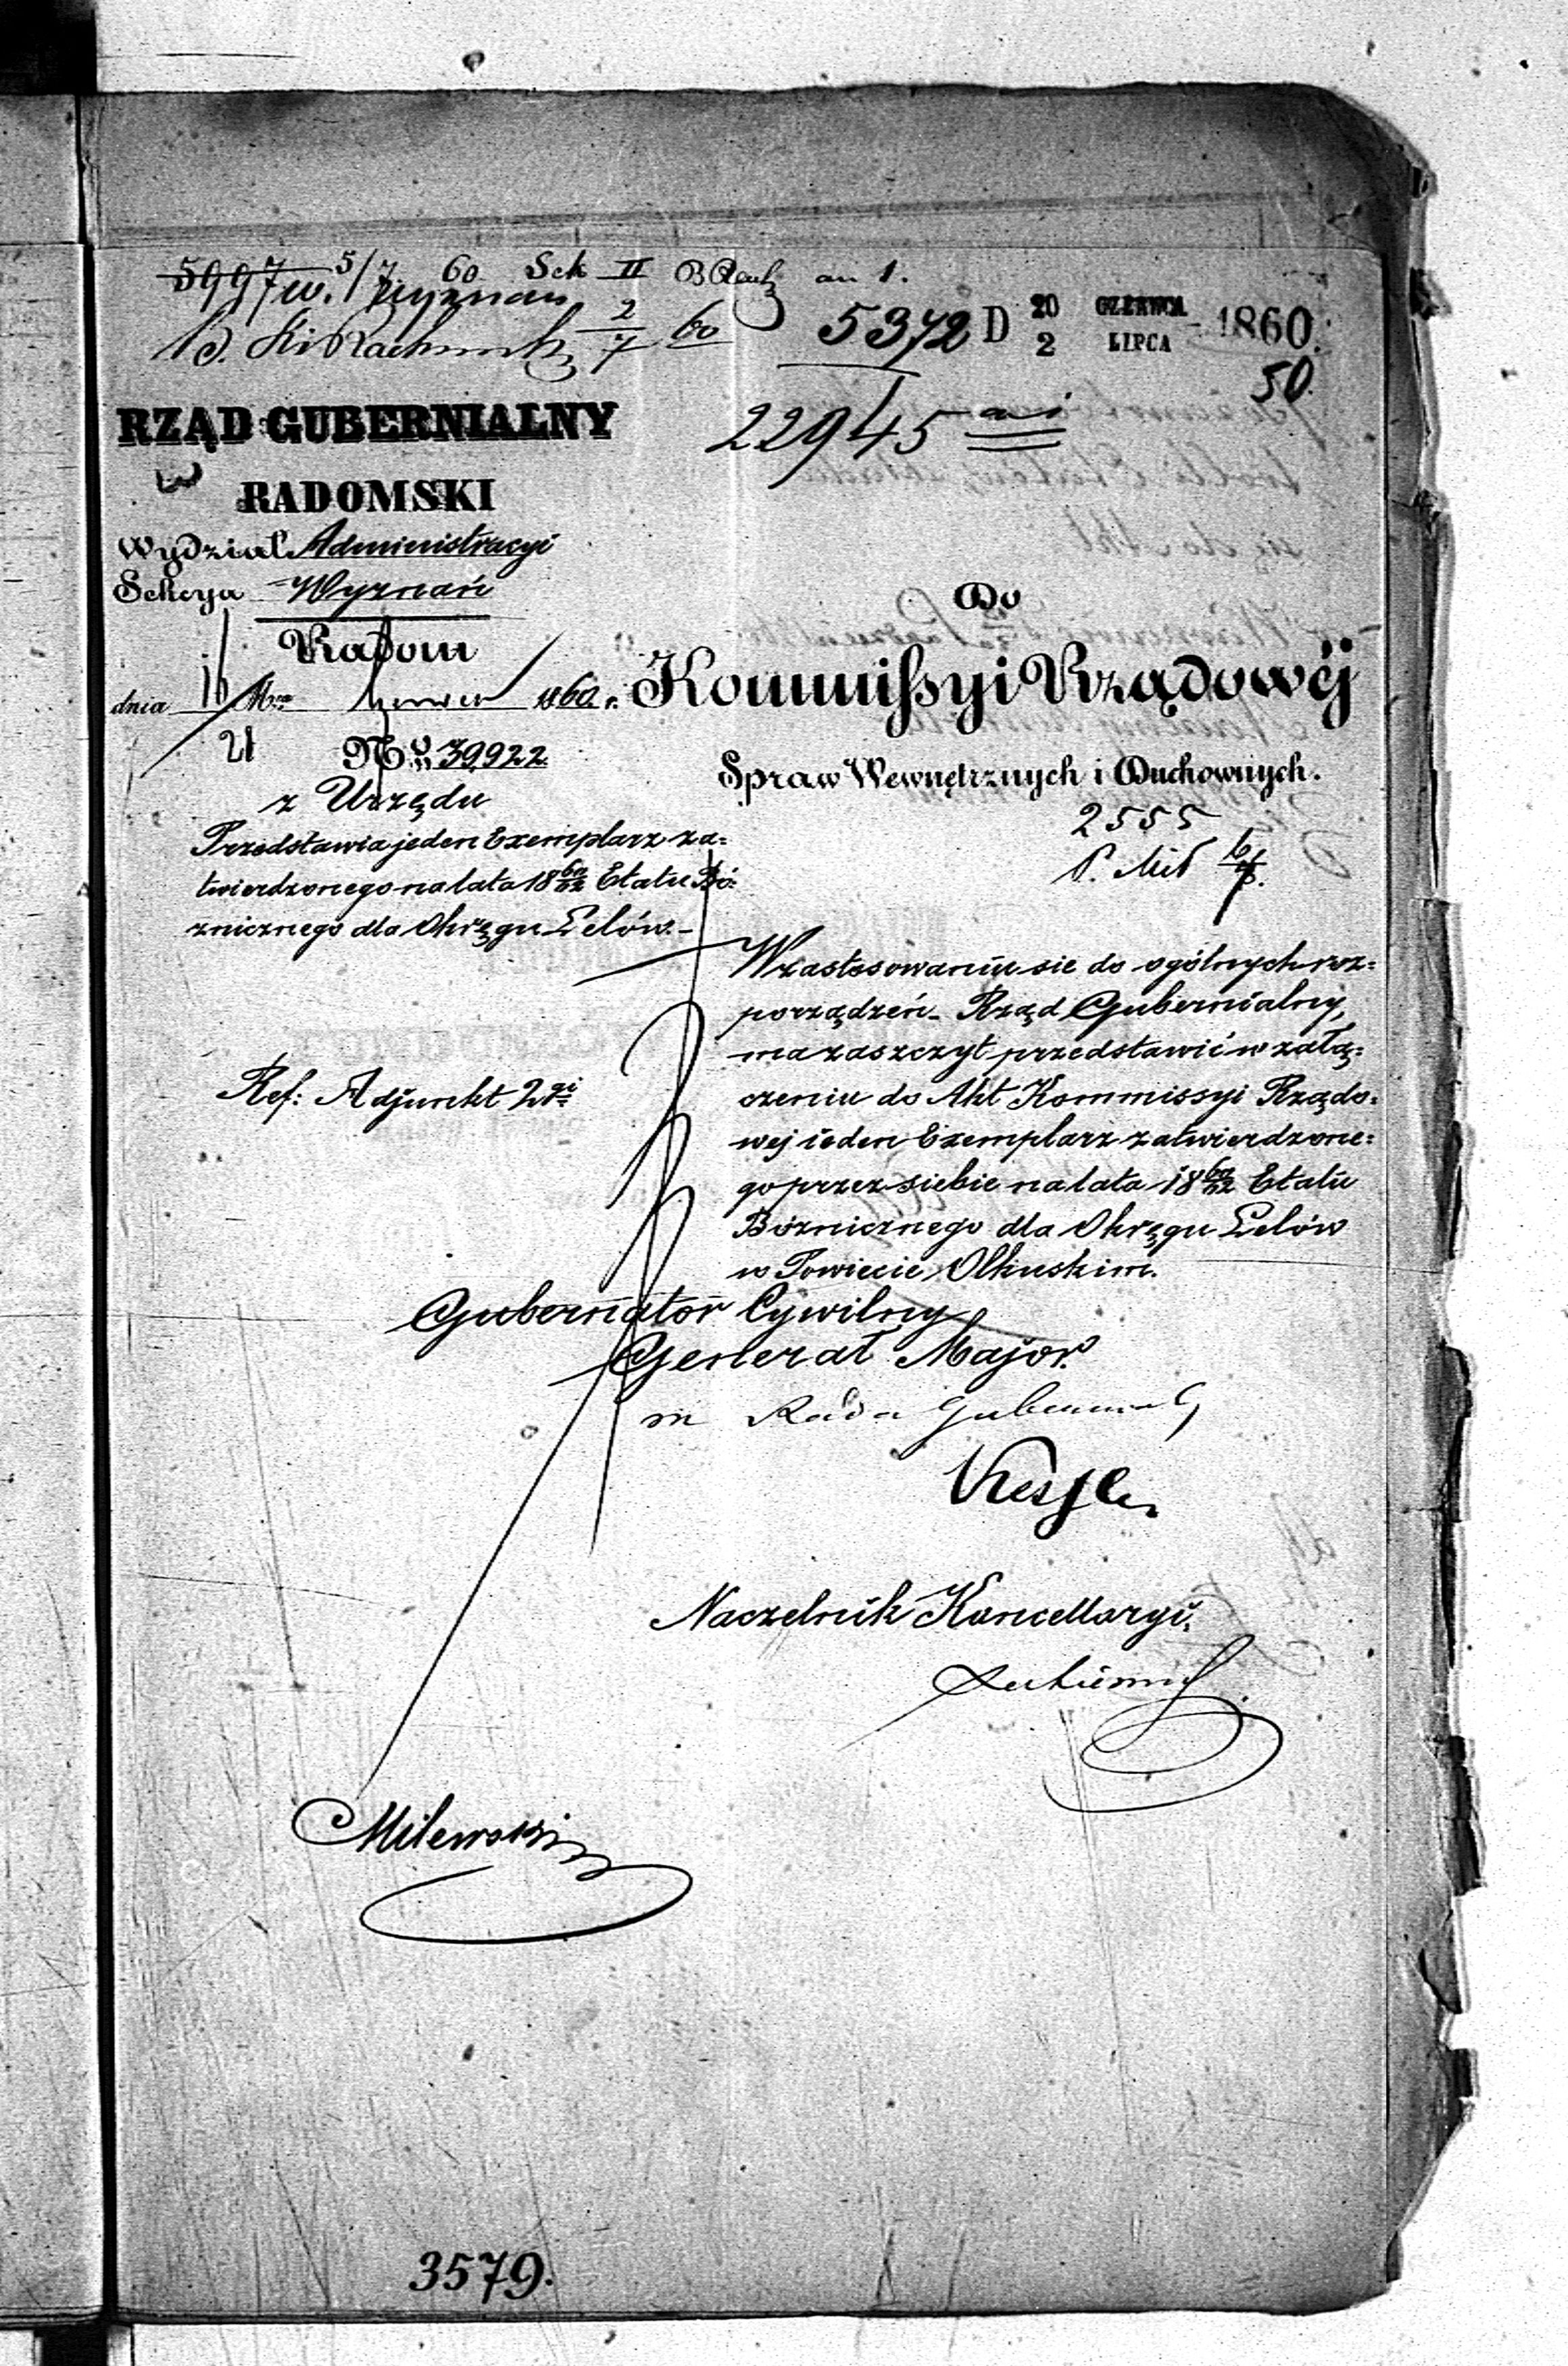 5997 w. 5/7 60 Sek II
Wyznań
2/7 60
5372 D 20/2 CZERWCA/LIPCA 1860.
50.
22945
RZĄD GUBERNIALNY
RADOMSKI
Wydział Administracyi
Sekcya Wyznań
Radom
dnia 1860 r.
21
№ 39922
z Urzędu
Przedstawia jeden Exemplarz za=
twierdzonego na lata 18 60/62 Etatu Bó=
żnicznego dla Okręgu Lelów.–
Ref: Adjunkt 2gi
Do
Kommissyi Rządowéj
Spraw Wewnętrznych i Duchownych.
2555
W zastosowaniu sie do ogólnych roz=
porządzeń– Rząd Gubernialny,
ma zaszczyt przedstawić w załą=
czeniu do Akt Kommissyi Rządo=
wej ieden Exemplarz zatwierdzone=
go przez siebie na lata 18 60/62 Etatu
Bóżnicznego dla Okręgu Lelów
w Powiecie Olkuskim.
Gubernator Cywilny
Generał Major.
Rada
Naczelnik Kancellaryi.
Milewski
3579.